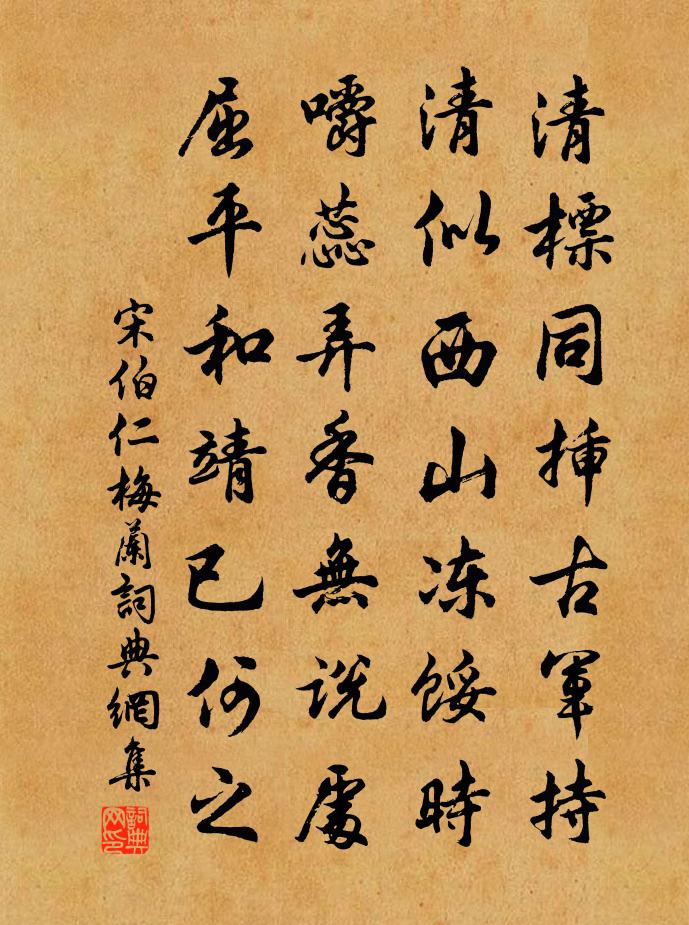 清標同揷古軍持
清似西山冻餒時
嚼蕊弄香無説處
屈平和靖已何之
宋伯仁梅蘭詞典網集
詞典网印